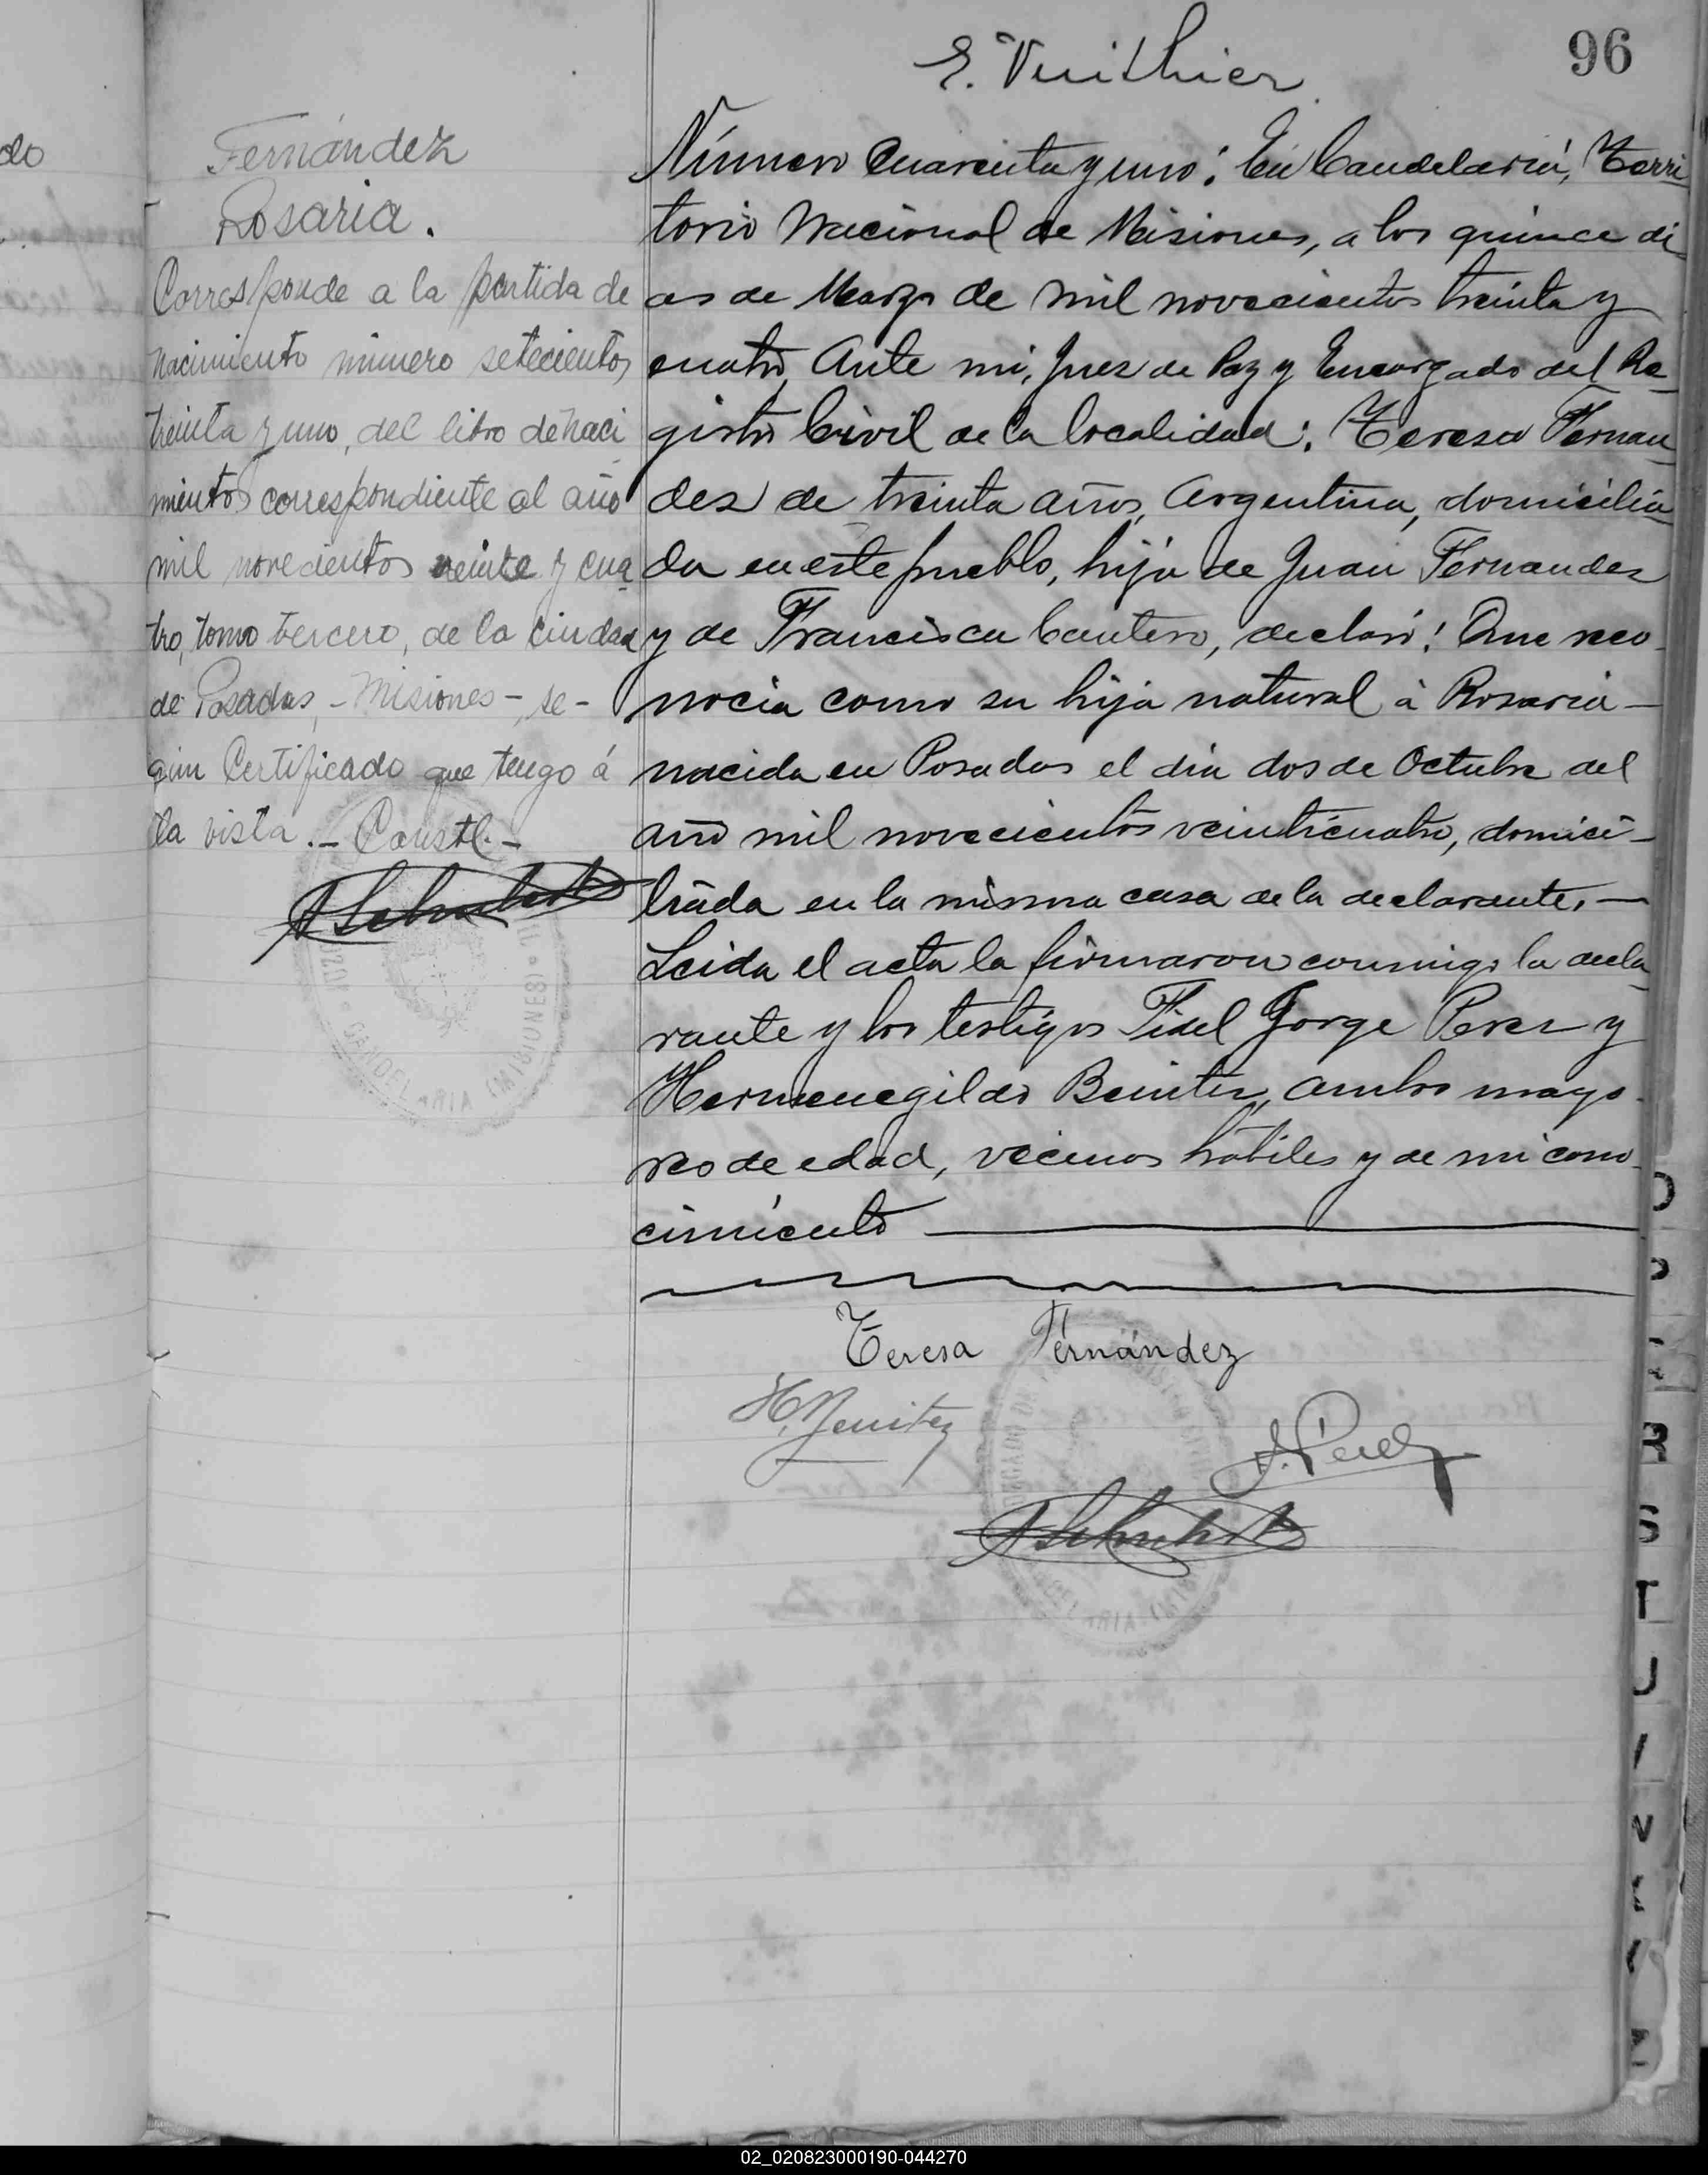 96
E. Vuithier
do
Fernández
Rosaria.
Corresponde a la partida de
nacimiento número setecientos
treinta y uno, del libro de naci
mientos correspondiente al año
mil novecientos veinte y cua
tro, tomo tercero, de la ciudad
de Posadas, - Misiones -, se-
gún Certificado que tengo á
la vista. - Constl. -
Número Cuarenta y uno: En Candelaria, Terri
torio Nacional de Misiones, a los quince di
as de Marzo de mil novecientos treinta y
cuatro, Ante mi, Juez de Paz y Encargado del Re
gistro Civil de la localidad: Teresa Fernan
dez de treinta años, Argentina, domicilia
da en este pueblo, hija de Juan Fernandez
y de Francisca Cantero, declaró: Que reco
nocia como su hija natural á Rosaria -
nacida en Posadas el dia dos de Octubre del
año mil novecientos veinticuatro, domici-
liada en la misma casa de la declarante. -
Leida el acta la firmaron conmigo la decla
rante y los testigos Fidel Jorge Perez y
Hermenegildo Benitez, ambos mayo
res de edad, vecinos hábiles y de mi cono
cimiento
Teresa Fernández
H. Benitez
J. Perez
CANDELARIA (MISIONES)
R
S
T
U
V
02_020823000190-044270